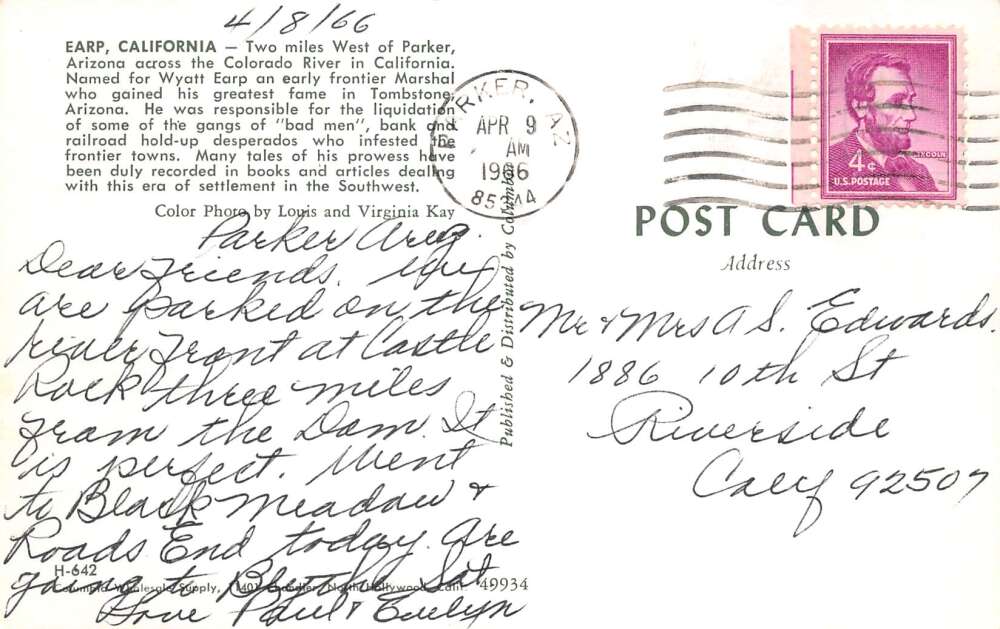 4/8/66
EARP, CALIFORNIA — Two miles West of Parker,
Arizona across the Colorado River in California.
Named for Wyatt Earp an early frontier Marshal
who gained his greatest fame in Tombstone,
Arizona. He was responsible for the liquidation
of some of the gangs of "bad men", bank and
railroad hold-up desperados who infested the
frontier towns. Many tales of his prowess have
been duly recorded in books and articles dealing
with this era of settlement in the Southwest.
Color Photo by Louis and Virginia Kay
Parker Ariz.
Dear Friends. We
are parked on the
river front at Castle
Rock three miles
from the Dam. It
is perfect. Went
to Black Meadow &
Roads End today. Are
going to Blythe Sat
Love Paul & Evelyn
H-642
Columbia Wholesale Supply, 11401 Chandler, North Hollywood, Calif. 49934
Published & Distributed by Columbia
PARKER, AZ
APR 9
AM
1966
LINCOLN
4¢
U.S. POSTAGE
POST CARD
Address
Mr & Mrs A S. Edwards.
1886 10th St
Riverside
Calif 92507